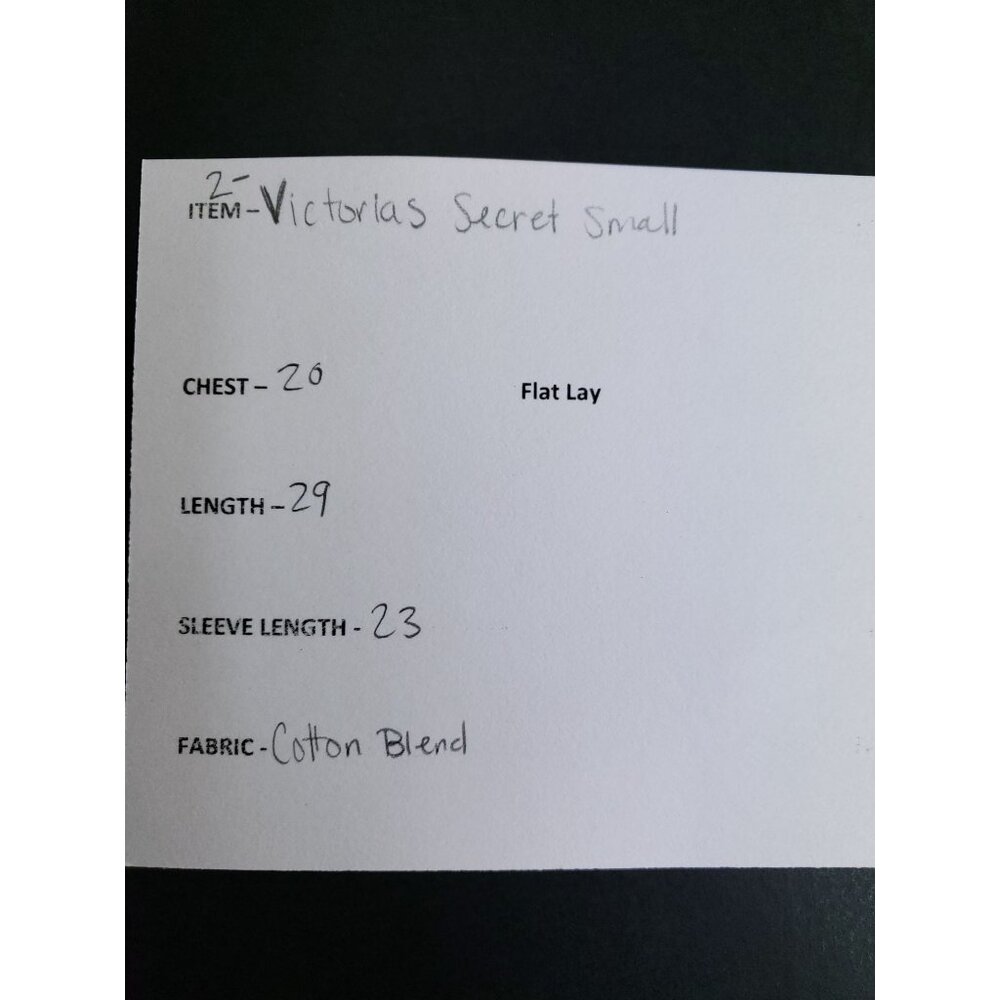 2-
ITEM - Victorias Secret Small
CHEST - 20 Flat Lay
LENGTH - 29
SLEEVE LENGTH - 23
FABRIC - Cotton Blend